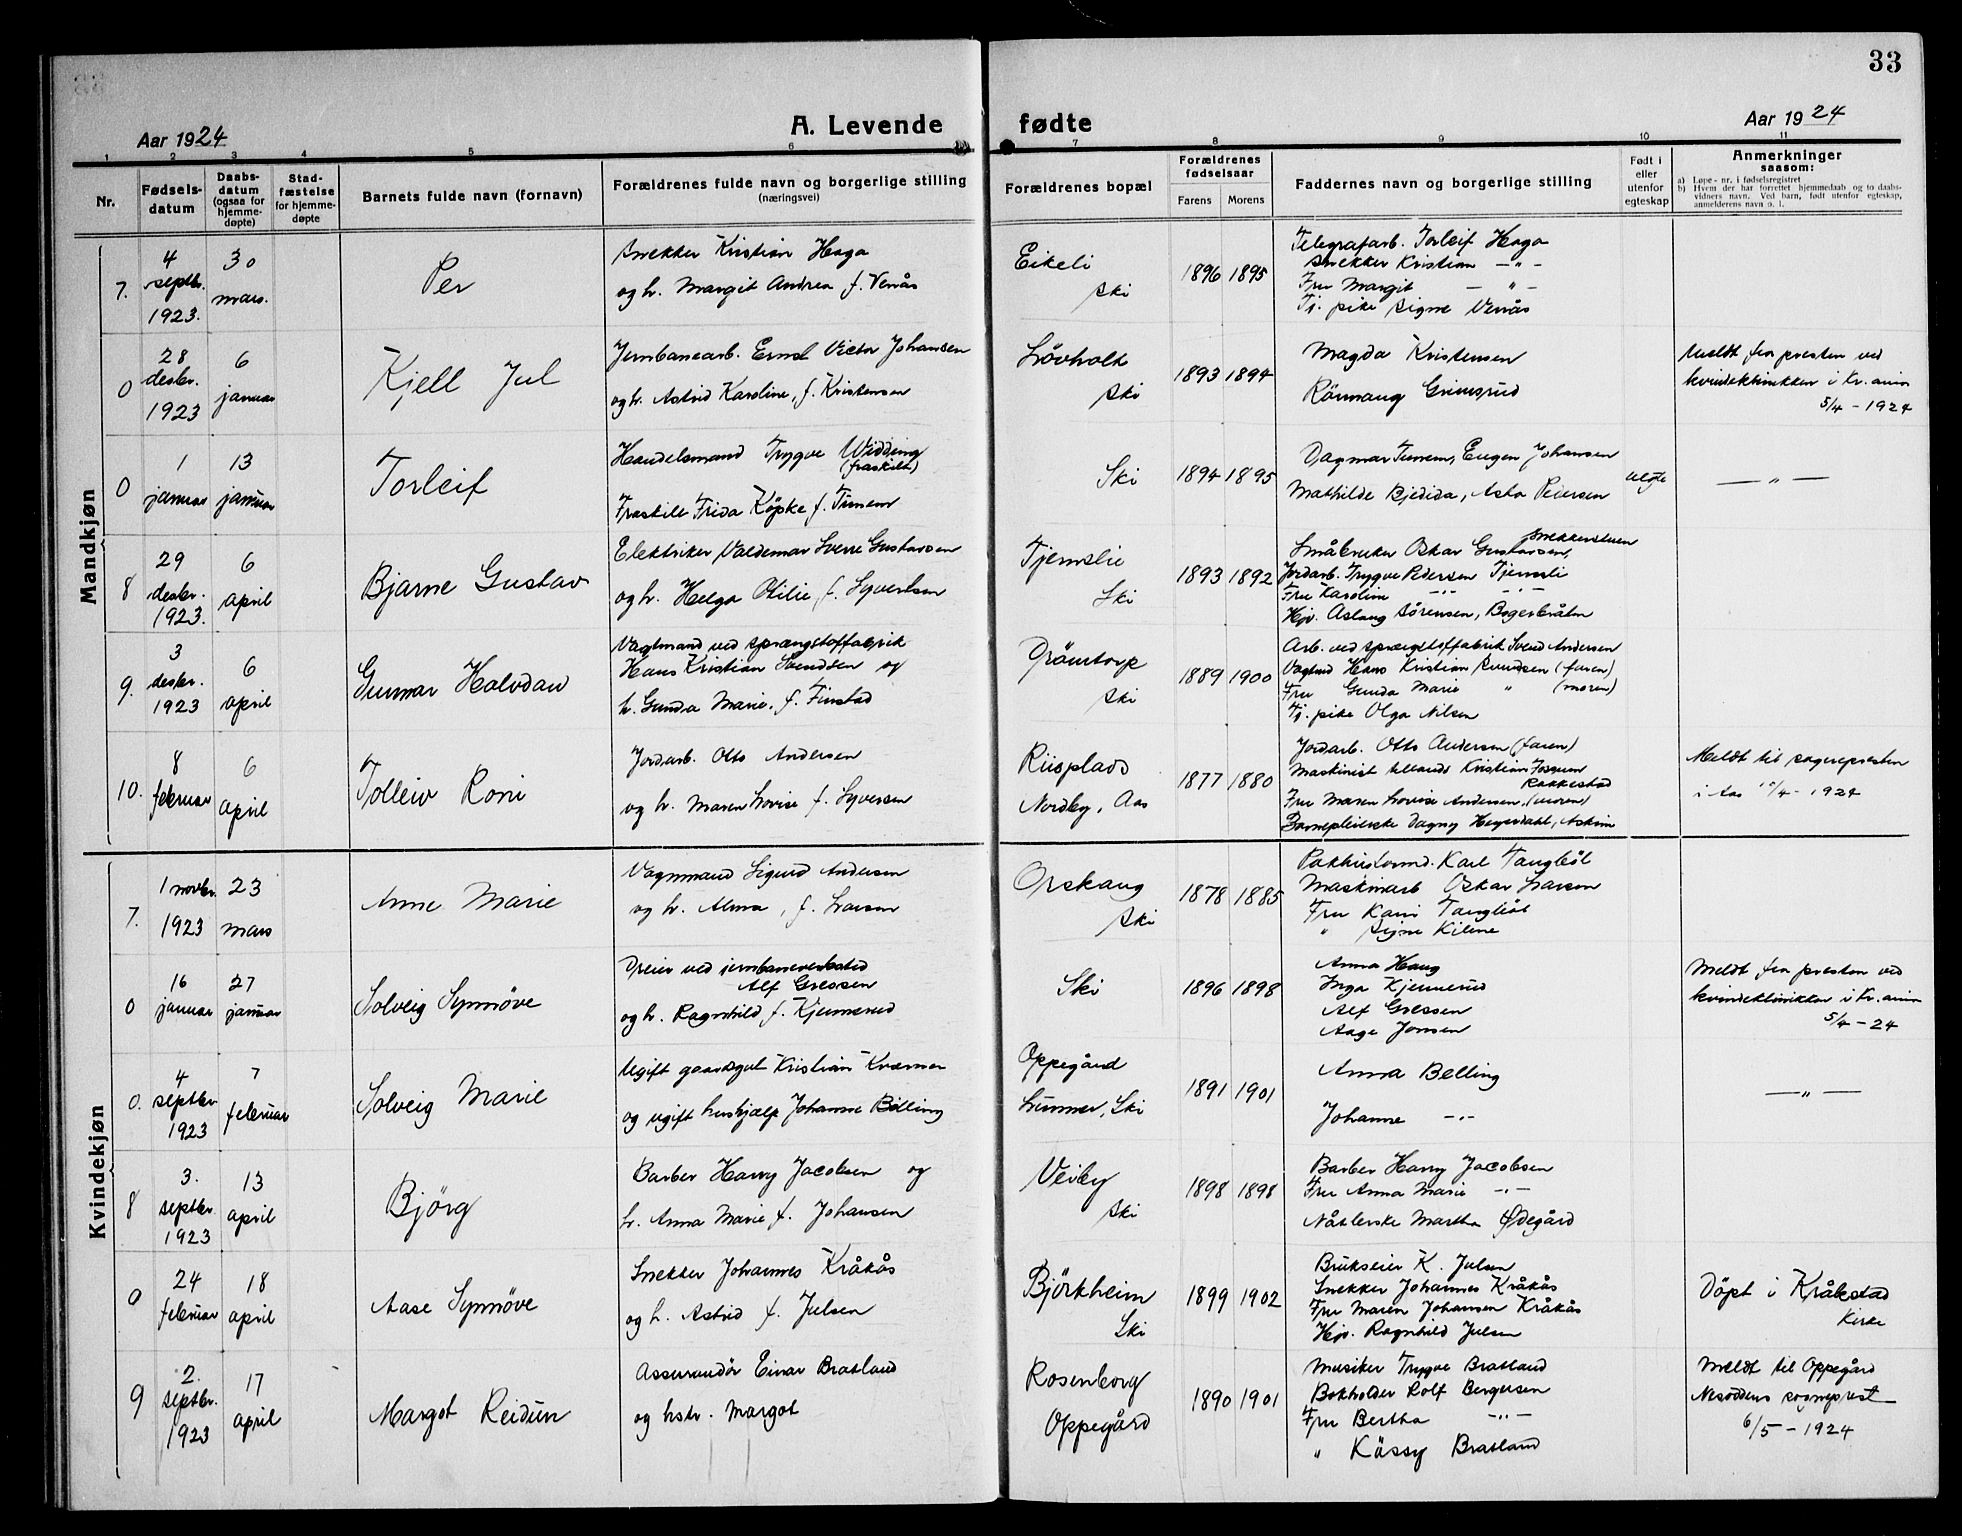 33
A. Levende fødte
Aar 1924
Aar 1924
1 2 3 4 5 6 7 8 9 10 11
Nr.
Fødselsdatum
Daabsdatum (ogsaa for hjemmedøpte)
Stadfæstelse for hjemmedøpte
Barnets fulde navn (fornavn)
Forældrenes fulde navn og borgerlige stilling (næringsvei)
Forældrenes bopæl
Forældrenes fødselsaar
Farens Morens
Faddernes navn og borgerlige stilling
Født i eller utenfor egteskap
Anmerkninger saasom:
a) Løpe-nr. i fødselsregistret
b) Hvem der har forrettet hjemmedaab og to daabsvidners navn. Ved barn, født utenfor egteskap, anmelderens navn o. l.
Mandkjøn
7. 4 septbr. 1923. 30 mars. Per
Snekker Kristian Haga
og h. Margit Andrea f. Venås
Eikeli Ski 1896 1895
Telegrafarb. Torleif Haga
Snekker Kristian -"-
Fru Margit -"-
Tj. pike Signe Venås
0 28 desbr. 1923 6 januar Kjell Jul
Jernbanearb. Ernst Victor Johansen
og h. Astrid Karoline, f. Kristensen
Lövholt Ski 1893 1894
Magda Kristensen
Rönnaug Grimsrud
Meldt fra presten ved
kvindeklinikken i Kr.ania
5/4 - 1924
0 1 januar 13 januar Torleif
Handelsmand Trygve Widding
(fraskilt)
Fraskilt Frida Köpke f. Timem
Ski 1894 1895
Dagmar Timem, Eugen Johansen
Mathilde Bjedida, Asta Petersen
uegte
— " —
8 29 desbr. 1923. 6 april Bjarne Gustav
Elektriker Valdemar Sverre Gustavsen
og h. Helga Otilie f. Syvertsen
Tjemslie Ski 1893 1892
Snekkerstuen
Småbruker Oskar Gustavsen,
Jordarb. Trygve Pedersen Tjemsli
Fru Karoline -"- -"-
Hjv. Aslaug Sörensen, Bogerbråten
9. 3 desbr. 1923 6 april Gunnar Halvdan
Vagtmand ved sprængstoffabrik
Hans Kristian Svendsen og
h. Gunda Marie, f. Finstad
Drömtorp Ski 1889 1900
Arb. ved sprængstoffabrik Svend Andersen
Vagtmd Hans Kristian Svendsen (faren)
Fru Gunda Marie " (moren)
Tj. pike Olga Nilsen
10. 8 februar 6 april Tolleiv Roni
Jordarb. Otto Andersen
og h. Maren Lovise f. Syversen
Riisplads
Nordby, Aas 1877 1880
Jordarb. Otto Andersen (faren)
Maskinist tillands Kristian
Rakkestad
Fru Maren Lovise Andersen, (moren)
Barnepleierske Dagny Hegerdahl, Askim
Meldt til sognepresten
i Aas 15/4 - 1924
Kvindekjøn
7. 1 novbr. 1923 23 mars Anne Marie
Vognmand Sigurd Andersen
og h. Alma, f. Larsen
Orskaug Ski 1878 1885
Pakhusformd. Karl Tangböl
Maskinarb Oskar Larsen
Fru Kani Tangböl
" Signe Kilene
0 16 januar 27 januar Solveig Synnöve
Dreier ved jernbaneverksted
Alf Gressen
og h. Ragnhild f. Kjennerud
Ski 1896 1898
Anna Haug
Inga Kjennerud
Alf Gressen
Aage Jonsen
Meldt fra presten ved
kvindeklinikken i Kr.ania
5/4 - 24
0. 4 septbr 1923 7 februar Solveig Marie
Ugift gaardsgut Kristian Kværner
og ugift hushjælp Johanne Bölling
Oppegård
Ski 1891 1901
Anna Belling
Johanne -"-
— " —
8 3. septbr. 1923 13 april Björg
Barber Harry Jacobsen og
h. Anna Marie f. Johansen
Veiby Ski 1898 1898
Barber Harry Jacobsen
Fru Anna Marie -"-
Nåtlerske Martha Ødegård
9 24 februar 18 april Aase Synnöve
Snekker Johannes Kråkås
og h. Astrid f. Julsen
Björkheim Ski 1899 1902
Brukseier K. Julsen
Snekker Johannes Kråkås
Fru Maren Johansen Kråkås
Hjv. Ragnhild Julsen
Döpt i Kråkstad
Kirke
9 2. septbr. 1923 17 april Margot Reidun
Assurandör Einar Bratland
og hstr. Margot
Rosenborg
Oppegård 1890 1901
Musiker Trygve Bratland
Bokholder Rolf Bergersen
Fru Bertha -"-
" Kässy Bratland
Meldt til Oppegård
Nesoddens sogneprest
6/5 - 1924